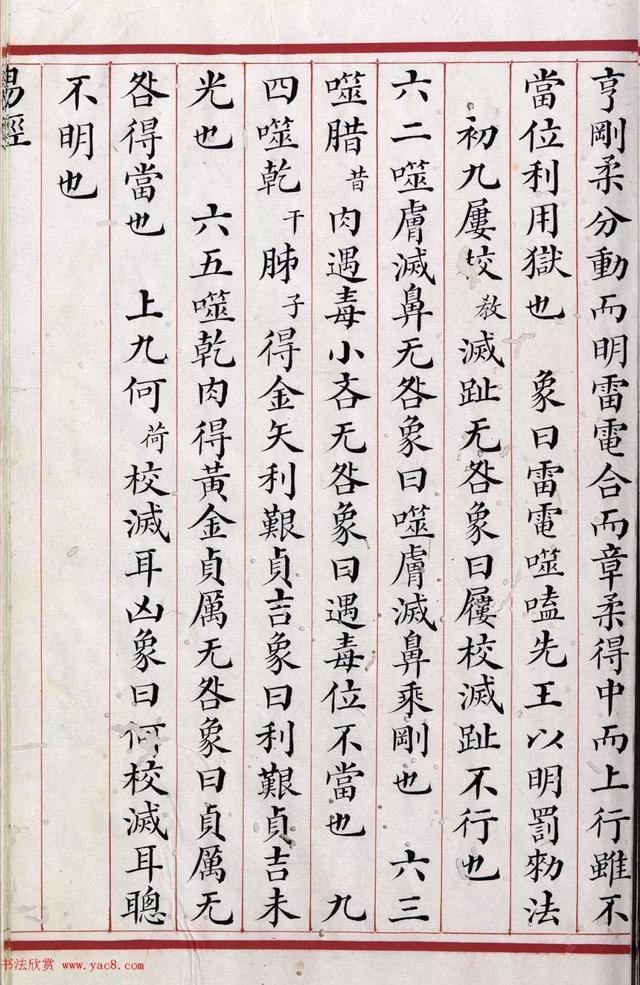 亨剛柔分動而明雷電合而章柔得中而上行雖不
當位利用獄也　象曰雷電噬嗑先王以明罰勑法
初九屢校敎滅趾无咎象曰屨校滅趾不行也
六二噬膚滅鼻无咎象曰噬膚滅鼻乘剛也　六三
噬腊昔肉遇毒小吝无咎象曰遇毒位不當也　九
四噬乾干胏子得金矢利艱貞吉象曰利艱貞吉未
光也　六五噬乾肉得黃金貞厲无咎象曰貞厲无
咎得當也　上九何荷校滅耳凶象曰何校滅耳聰
不明也
易經
书法欣赏 www.yac8.com